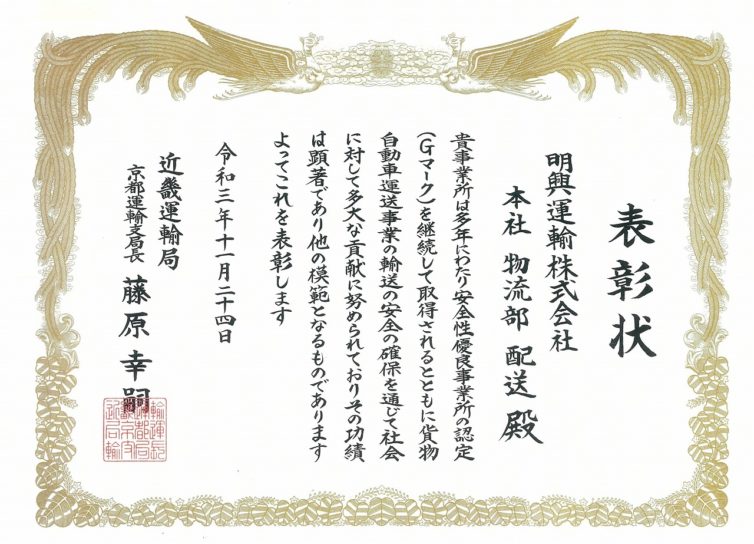 表彰状
明興運輸株式会社
本社 物流部 配送 殿
貴事業所は多年にわたり安全性優良事業所の認定
(Gマーク)を継続して取得されるとともに貨物
自動車運送事業の輸送の安全の確保を通じて社会
に対して多大な貢献に努められておりその功績
は顕著であり他の模範となるものであります
よってこれを表彰します
令和三年十一月二十四日
近畿運輸局
京都運輸支局長 藤原幸嗣